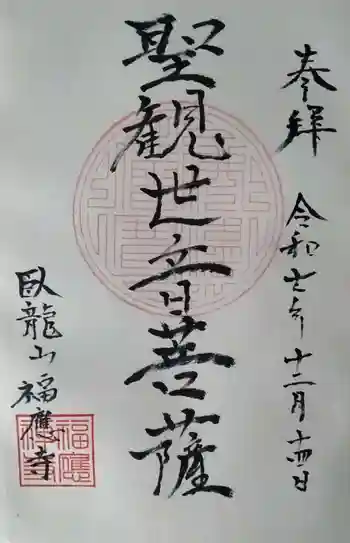 奉拝
令和七年 十二月 十四日
聖観世音菩薩
臥龍山 福應寺
福應